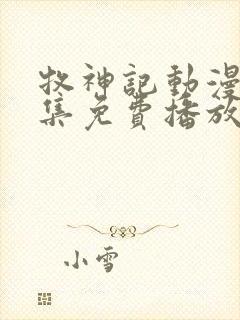 牧神記動漫
集免費播放
小雪